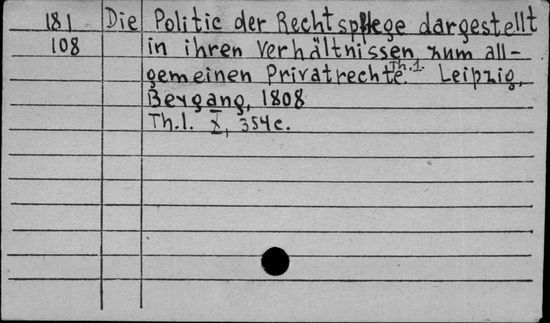 181 Die Politic der Rechtspflege dargestellt
108 in ihren Verhältnissen zum all-
gemeinen Privatrechte. Th.1. Leipzig,
Beygang, 1808
Th.1. X, 354c.